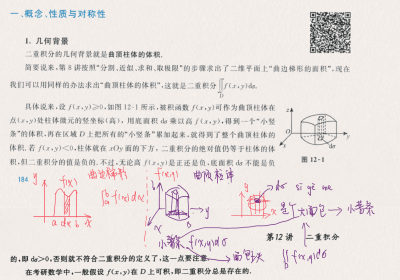 一、概念、性质与对称性
1. 几何背景
二重积分的几何背景就是曲顶柱体的体积.
简要说来,第8讲按照“分割、近似、求和、取极限”的步骤求出了二维平面上“曲边梯形的面积”,现在
我们可以用同样的办法求出“曲顶柱体的体积”,这就是二重积分∬f(x,y)dσ.
D
具体说来,设 f(x,y)≥0,如图12-1所示,被积函数 f(x,y)可作为曲顶柱体在
点(x,y)处柱体微元的竖坐标(高),用底面积 dσ 乘以高 f(x,y),得到一个“小竖
条”的体积,再在区域 D 上把所有的“小竖条”累加起来,就得到了整个曲顶柱体的
体积.若 f(x,y)<0,柱体就在 xOy 面的下方,二重积分的绝对值仍等于柱体的体
积,但二重积分的值是负的.不过,无论高 f(x,y)是正还是负,底面积 dσ 不能是负
z
O
y
x
dσ
图 12-1
184
y
f(x)
a dx b x
曲边梯形
∫f(x)dx
f(x,y)
曲顶柱体
y
x
dσ
大面包 → 小薯条
第12讲 二重积分
小薯条 f(x,y)dσ
面包块 ∬f(x,y)dσ
D
的,即 dσ>0,否则就不符合二重积分的定义了,这一点要注意.
在考研数学中,一般假设 f(x,y)在 D 上可积,即二重积分总是存在的.